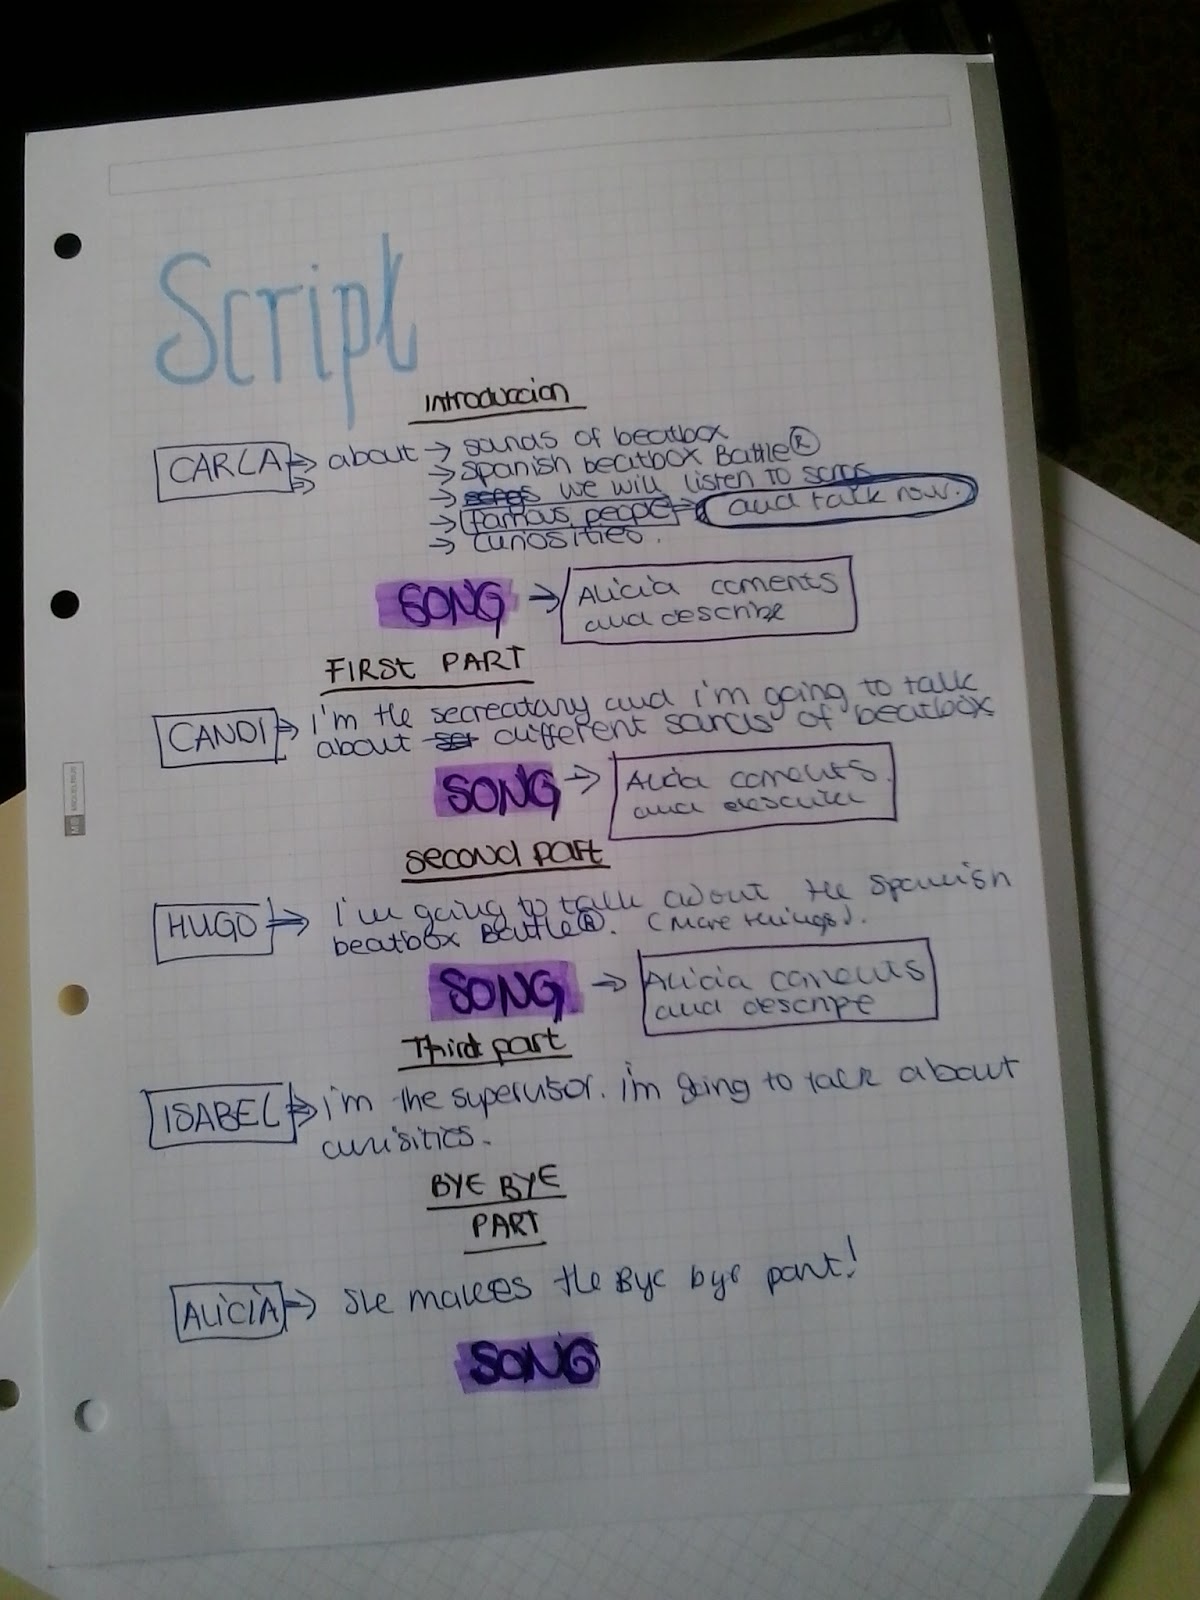 Script
Introduccion
CARLA → about → sounds of beatbox
→ spanish beatbox Battle®
→ we will listen to songs
→ famous people → and talk now.
→ curiosities.
SONG → Alicia coments
and describe
FIRST PART
CANDI → I'm the secreatary and i'm going to talk
about different sounds of beatbox
SONG → Alicia coments.
and describe
second part
HUGO → I'm going to talk about the spanish
beatbox Battle®. (More things).
SONG → Alicia coments
and descripe
Third part
ISABEL → i'm the supervisor. i'm going to talk about
curisities.
BYE BYE
PART
ALICIA → She makes the Bye bye part!
SONG